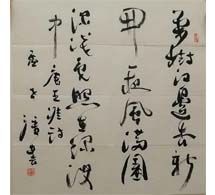 萬樹江邊杏新
開一夜風滿園
深淺色照在綠波
中 唐王涯詩